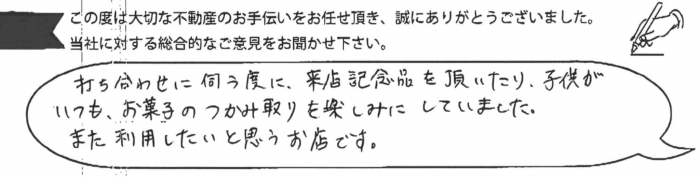 この度は大切な不動産のお手伝いをお任せ頂き、誠にありがとうございました。
当社に対する総合的なご意見をお聞かせ下さい。
打ち合わせに伺う度に、来店記念品を頂いたり、子供が
いつも、お菓子のつかみ取りを楽しみにしていました。
また利用したいと思うお店です。